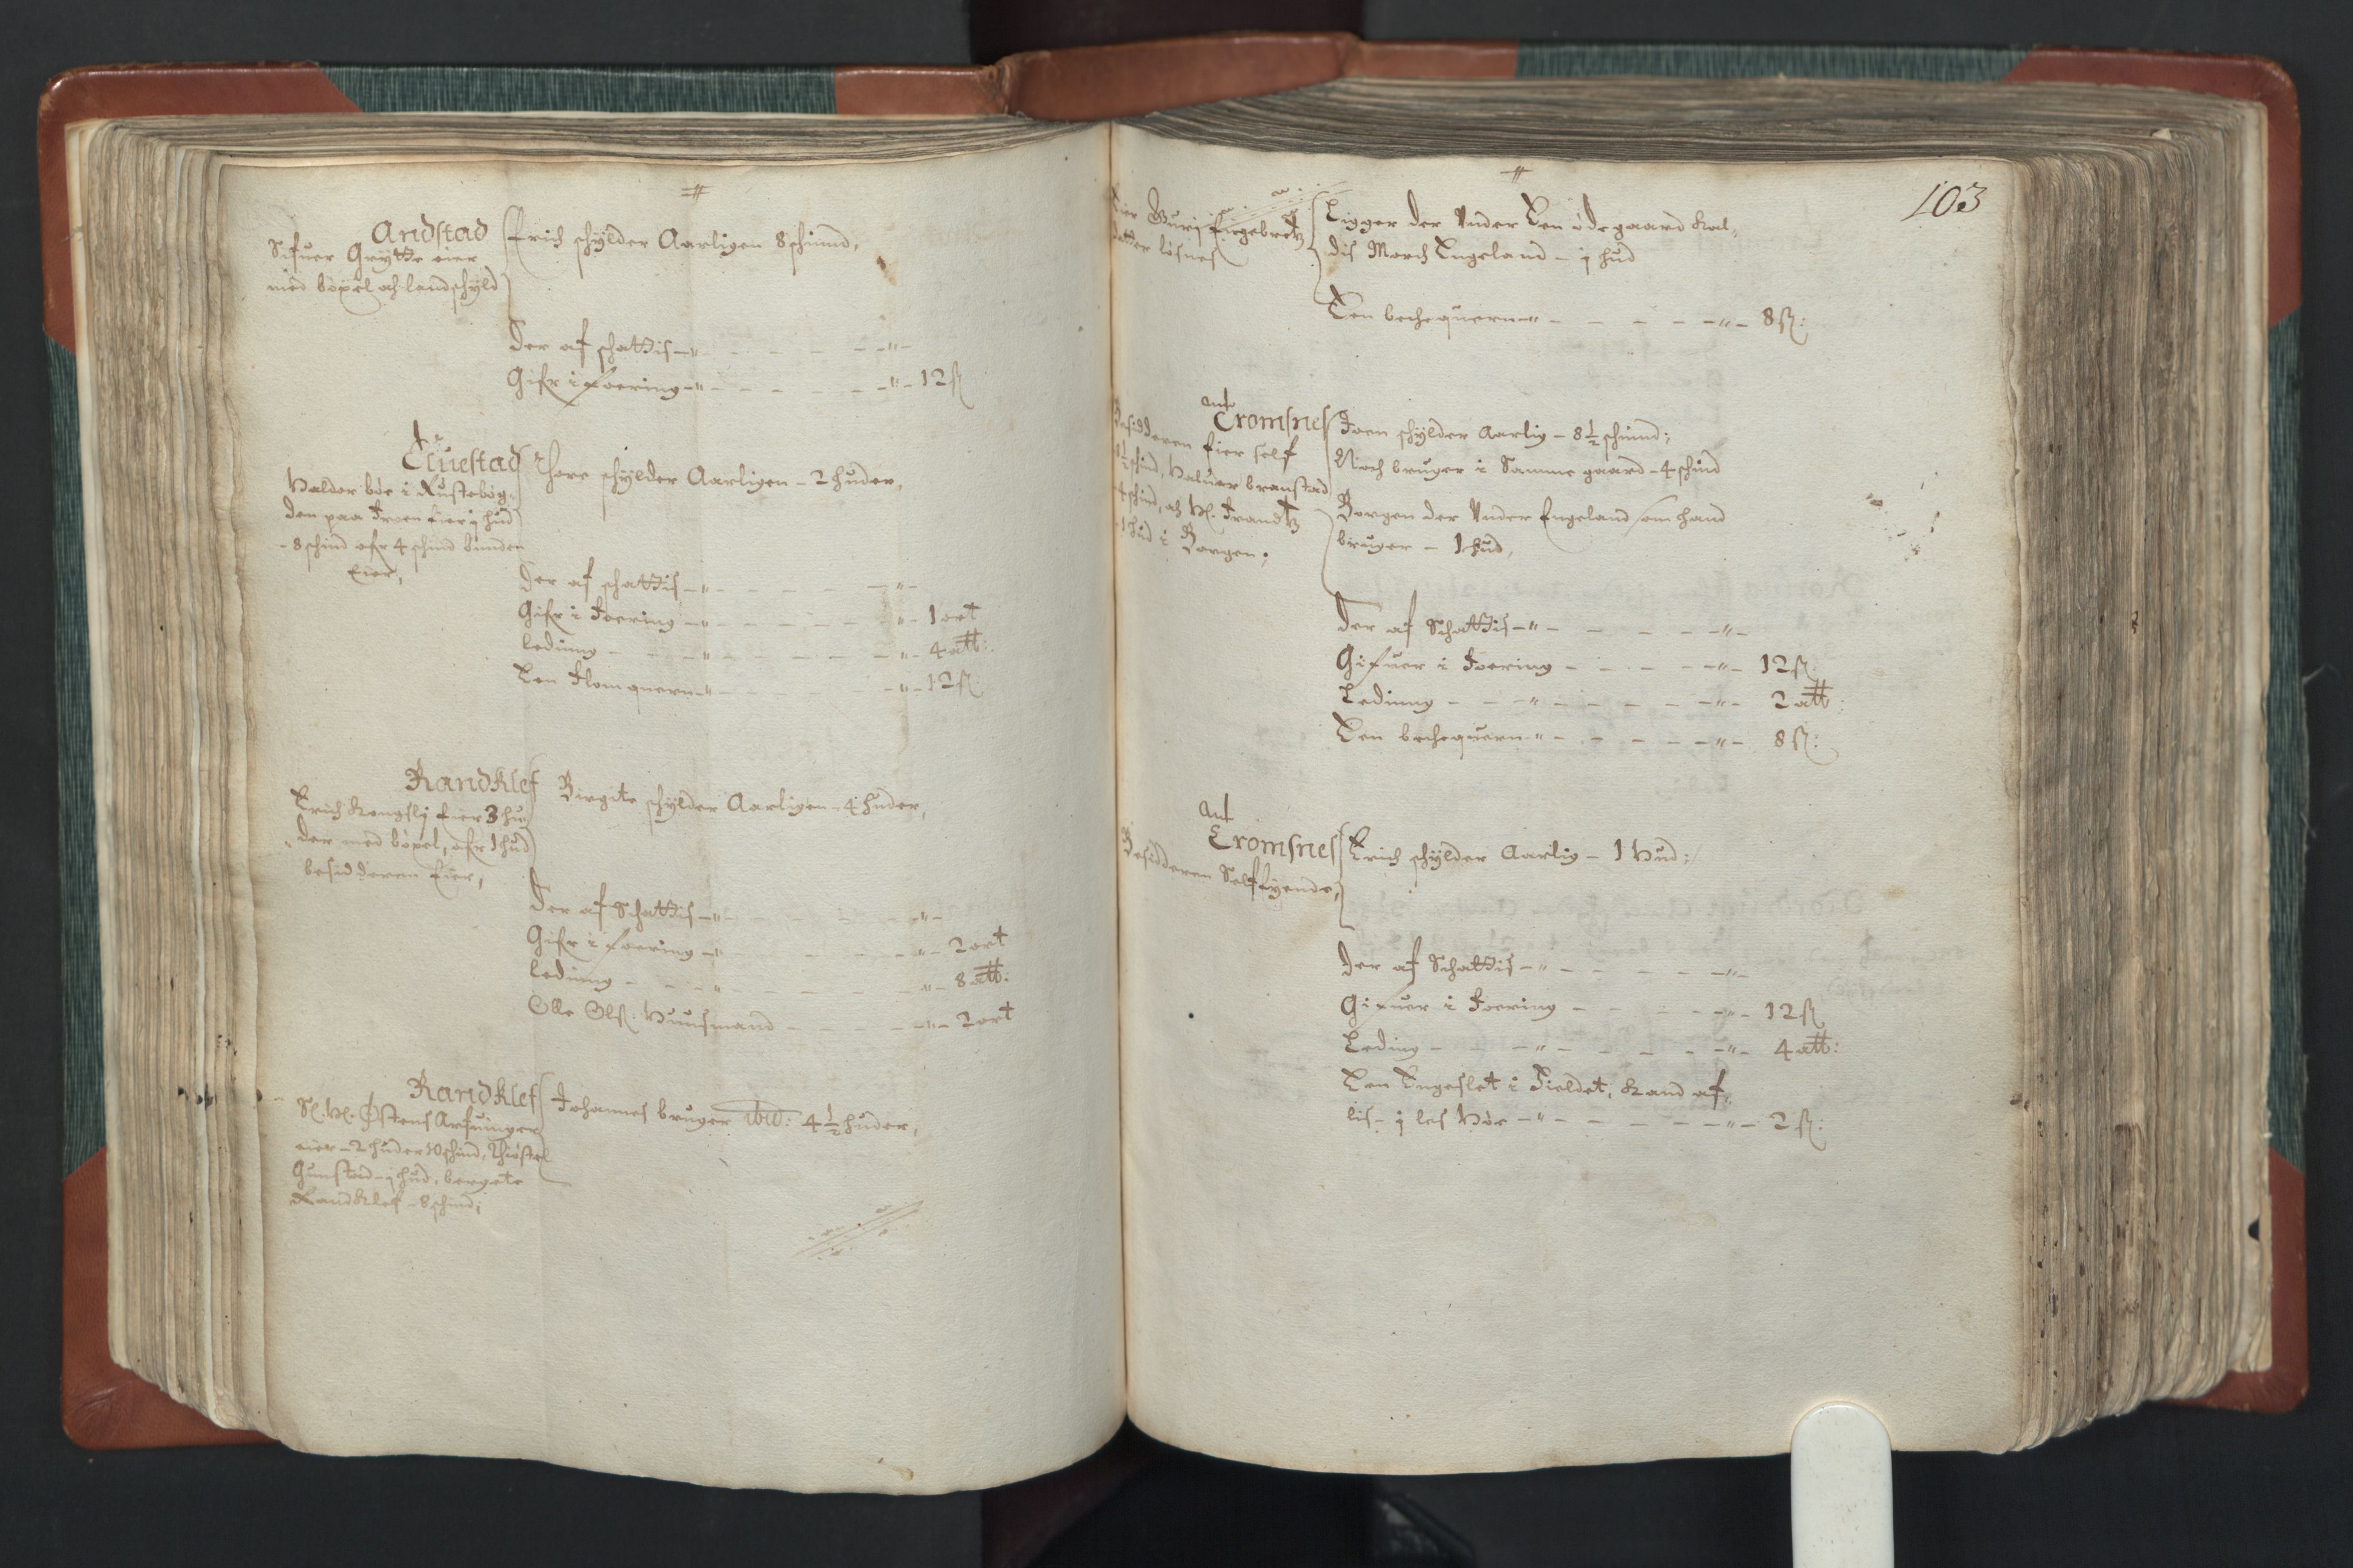 Andstad
Sifuer Grytte eier
med böxel och landschyld
Erich schylder Aarligen 8 schind,
Der af schattis
Gifr i foering 12 ß
Tiuestad
Halder böe i
den paa Froen Eier j hud
8 schind ofr 4 schind bunden
Eier,
Thore schylder Aarligen - 2 huder,
Der af schattis
Gifr i Foering 1 ort
leding 4 att:
Een Flomquern 12 ß
Randklef
Erich Kongsly Eier 3 hu
der med böxel, ofr 1 hud
besidderen Eier,
Birgite schylder Aarligen - 4 huder,
Der af Schattis
Gifr i foering 2 ort
leding 8 att:
Olle Olß: Huusmand 2 ort
Randklef
Sl. Hl. Østens Arfuinger
eier - 2 huder 10 schind,
Gunstad - j hud, bergete
Randklef - 8 schind;
Johannes bruger ibid: 4 1/2 huder,
103
Eier Guri Engebretz
datter lösnes
Ligger der Under Een ödegaard kal,,
dis March Engeland - j hud
Een bechequern 8 ß:
ant
Tromsnes
Besidderen Eier self
8 1/2 schind, Haluar branstad
4 schind, och Hl. Frandtz
1 hud i Borgen;
Joen schylder Aarlig - 8 1/2 schind;
Noch bruger i Samme gaard - 4 schind
Borgen der Under Engeland som hand
bruger - 1 hud,
Der af Schattis
Gifuer i Foering 12 ß
Leding 2 att:
Een bechequern 8 ß:
ant
Tromsnes
Besidderen Self Eyende,
Erich schylder Aarlig - 1 Hud:
Der af Schattis
Gifuer i Foering 12 ß
Leding 4 att:
Een Engeslet i Fieldet, kand af,,
lis - j les Höe 2 ß: